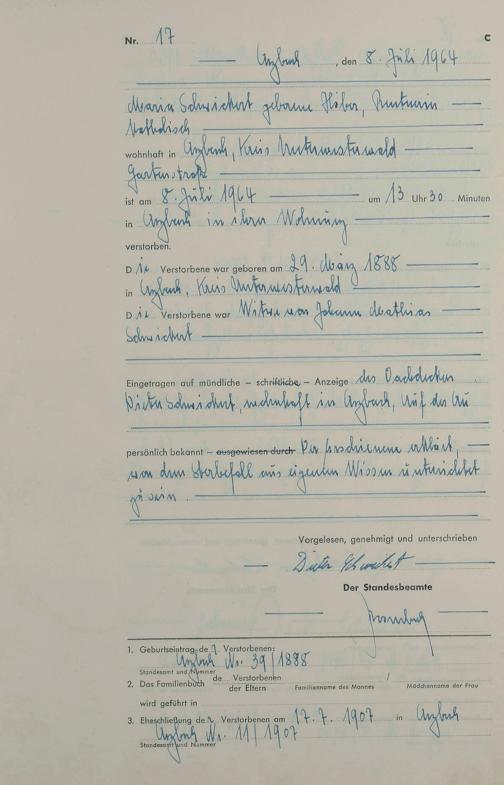 Nr. 17
C
Arzbach, den 8. Juli 1964
Maria Schwickert geborene Höber, Rentnerin
katholisch
wohnhaft in Arzbach, Kreis Unterwesterwald
Gartenstraße
ist am 8. Juli 1964 um 13 Uhr 30 Minuten
in Arzbach in ihrer Wohnung
verstorben.
Die Verstorbene war geboren am 29. März 1888
in Arzbach, Kreis Unterwesterwald
Die Verstorbene war Witwe von Johann Mathias
Schwickert
Eingetragen auf mündliche – schriftliche – Anzeige des Dachdeckers
Dieter Schwickert, wohnhaft in Arzbach, Auf der Au
persönlich bekannt – ausgewiesen durch Der Erschienene erklärt,
von dem Sterbefall aus eigenem Wissen unterrichtet
zu sein.
Vorgelesen, genehmigt und unterschrieben
Dieter Schwickert
Der Standesbeamte
1. Geburtseintrag der Verstorbenen:
Arzbach Nr. 39/1888
Standesamt und Nummer
2. Das Familienbuch de Verstorbenen /
der Eltern Familienname des Mannes Mädchenname der Frau
wird geführt in
3. Eheschließung der Verstorbenen am 17.7.1907 in Arzbach
Arzbach Nr. 11/1907
Standesamt und Nummer